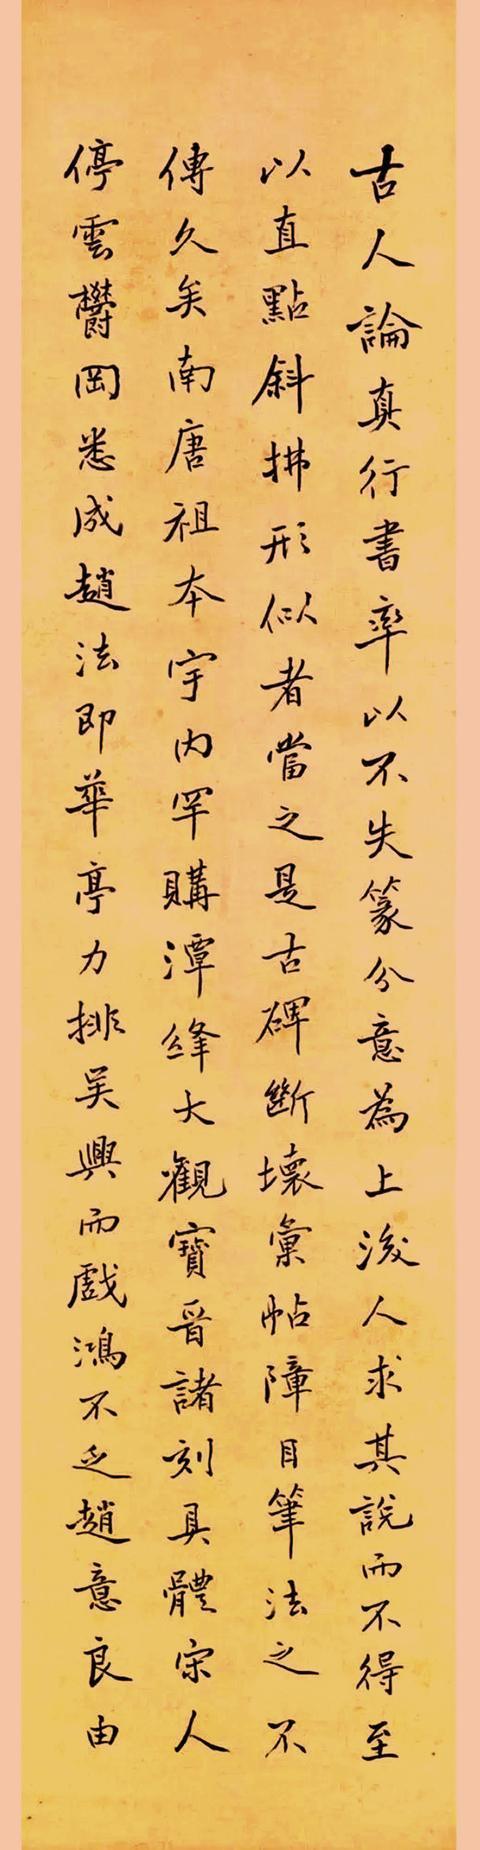 古人論真行書率以不失篆分意為上後人求其說而不得至
以直點斜拂形似者當之是古碑斷壞彙帖障目筆法之不
傳久矣南唐祖本宇内罕購潭絳大觀寶晉諸刻具體宋人
停雲欎岡悉成趙法即華亭力排吴興而戲鴻不乏趙意良由